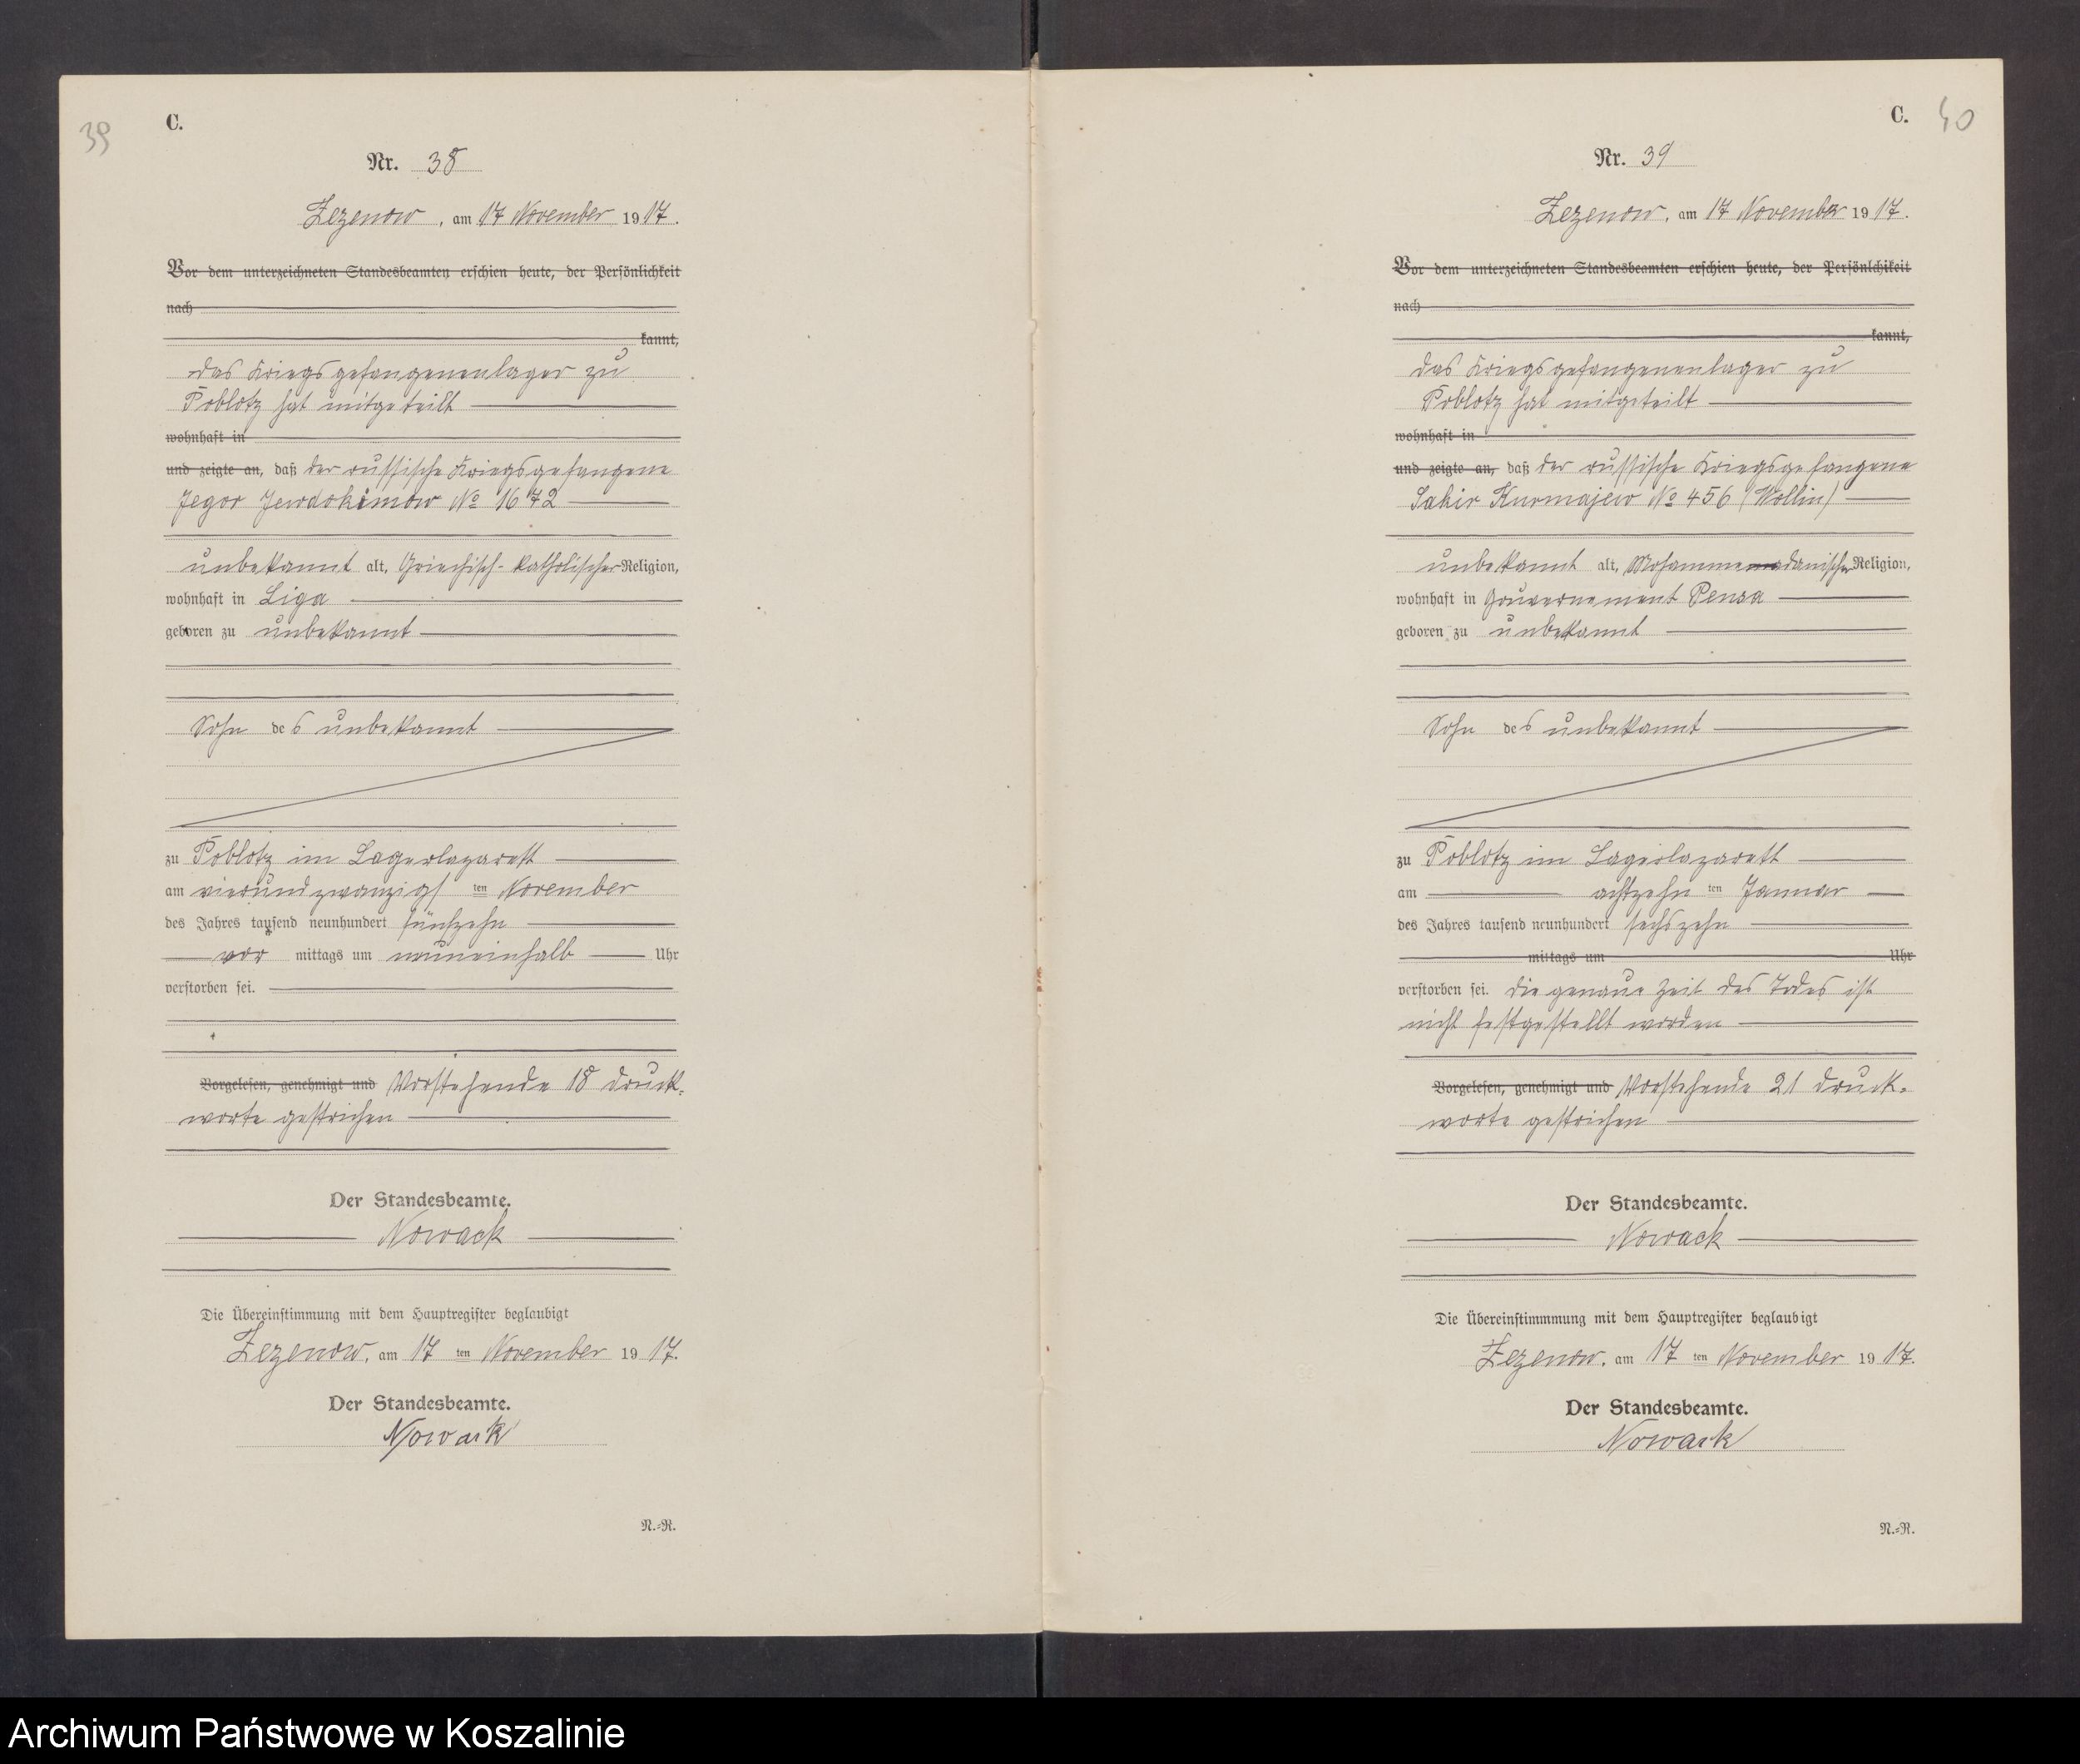 39
C.
Nr. 38
Zezenow, am 17 November 1917.
Vor dem unterzeichneten Standesbeamten erschien heute, der Persönlichkeit
nach
kannt,
das Kriegsgefangenenlager zu
Poblotz hat mitgeteilt
wohnhaft in
und zeigte an, daß der russische Kriegsgefangene
Jegor Jewdokimow No 1672
unbekannt alt, Griechisch-katholischer Religion,
wohnhaft in Liga
geboren zu unbekannt
Sohn des unbekannt
zu Poblotz im Lagerlazarett
am vierundzwanzigsten November
des Jahres tausend neunhundert fünfzehn
vor mittags um neuneinhalb Uhr
verstorben sei.
Vorgelesen, genehmigt und Vorstehende 18 Druck-
worte gestrichen
Der Standesbeamte.
Nowack
Die Übereinstimmung mit dem Hauptregister beglaubigt
Zezenow, am 17 ten November 1917.
Der Standesbeamte.
Nowack
N.=R.
C. 40
Nr. 39
Zezenow, am 17 November 1917.
Vor dem unterzeichneten Standesbeamten erschien heute, der Persönlchikeit
nach
kannt,
das Kriegsgefangenenlager zu
Poblotz hat mitgeteilt
wohnhaft in
und zeigte an, daß der russische Kriegsgefangene
Sakir Kurmajew No 456 (Wollin)
unbekannt alt, Mohammedanischer Religion,
wohnhaft in Gouvernement Pensa
geboren zu unbekannt
Sohn des unbekannt
zu Poblotz im Lagerlazarett
am achtzehn ten Januar
des Jahres tausend neunhundert sechszehn
mittags um Uhr
verstorben sei. Die genaue Zeit des Todes ist
nicht festgestellt worden
Vorgelesen, genehmigt und Vorstehende 21 Druck-
worte gestrichen
Der Standesbeamte.
Nowack
Die Übereinstimmmung mit dem Hauptregister beglaubigt
Zezenow, am 17 ten November 1917.
Der Standesbeamte.
Nowack
N.=R.
Archiwum Państwowe w Koszalinie